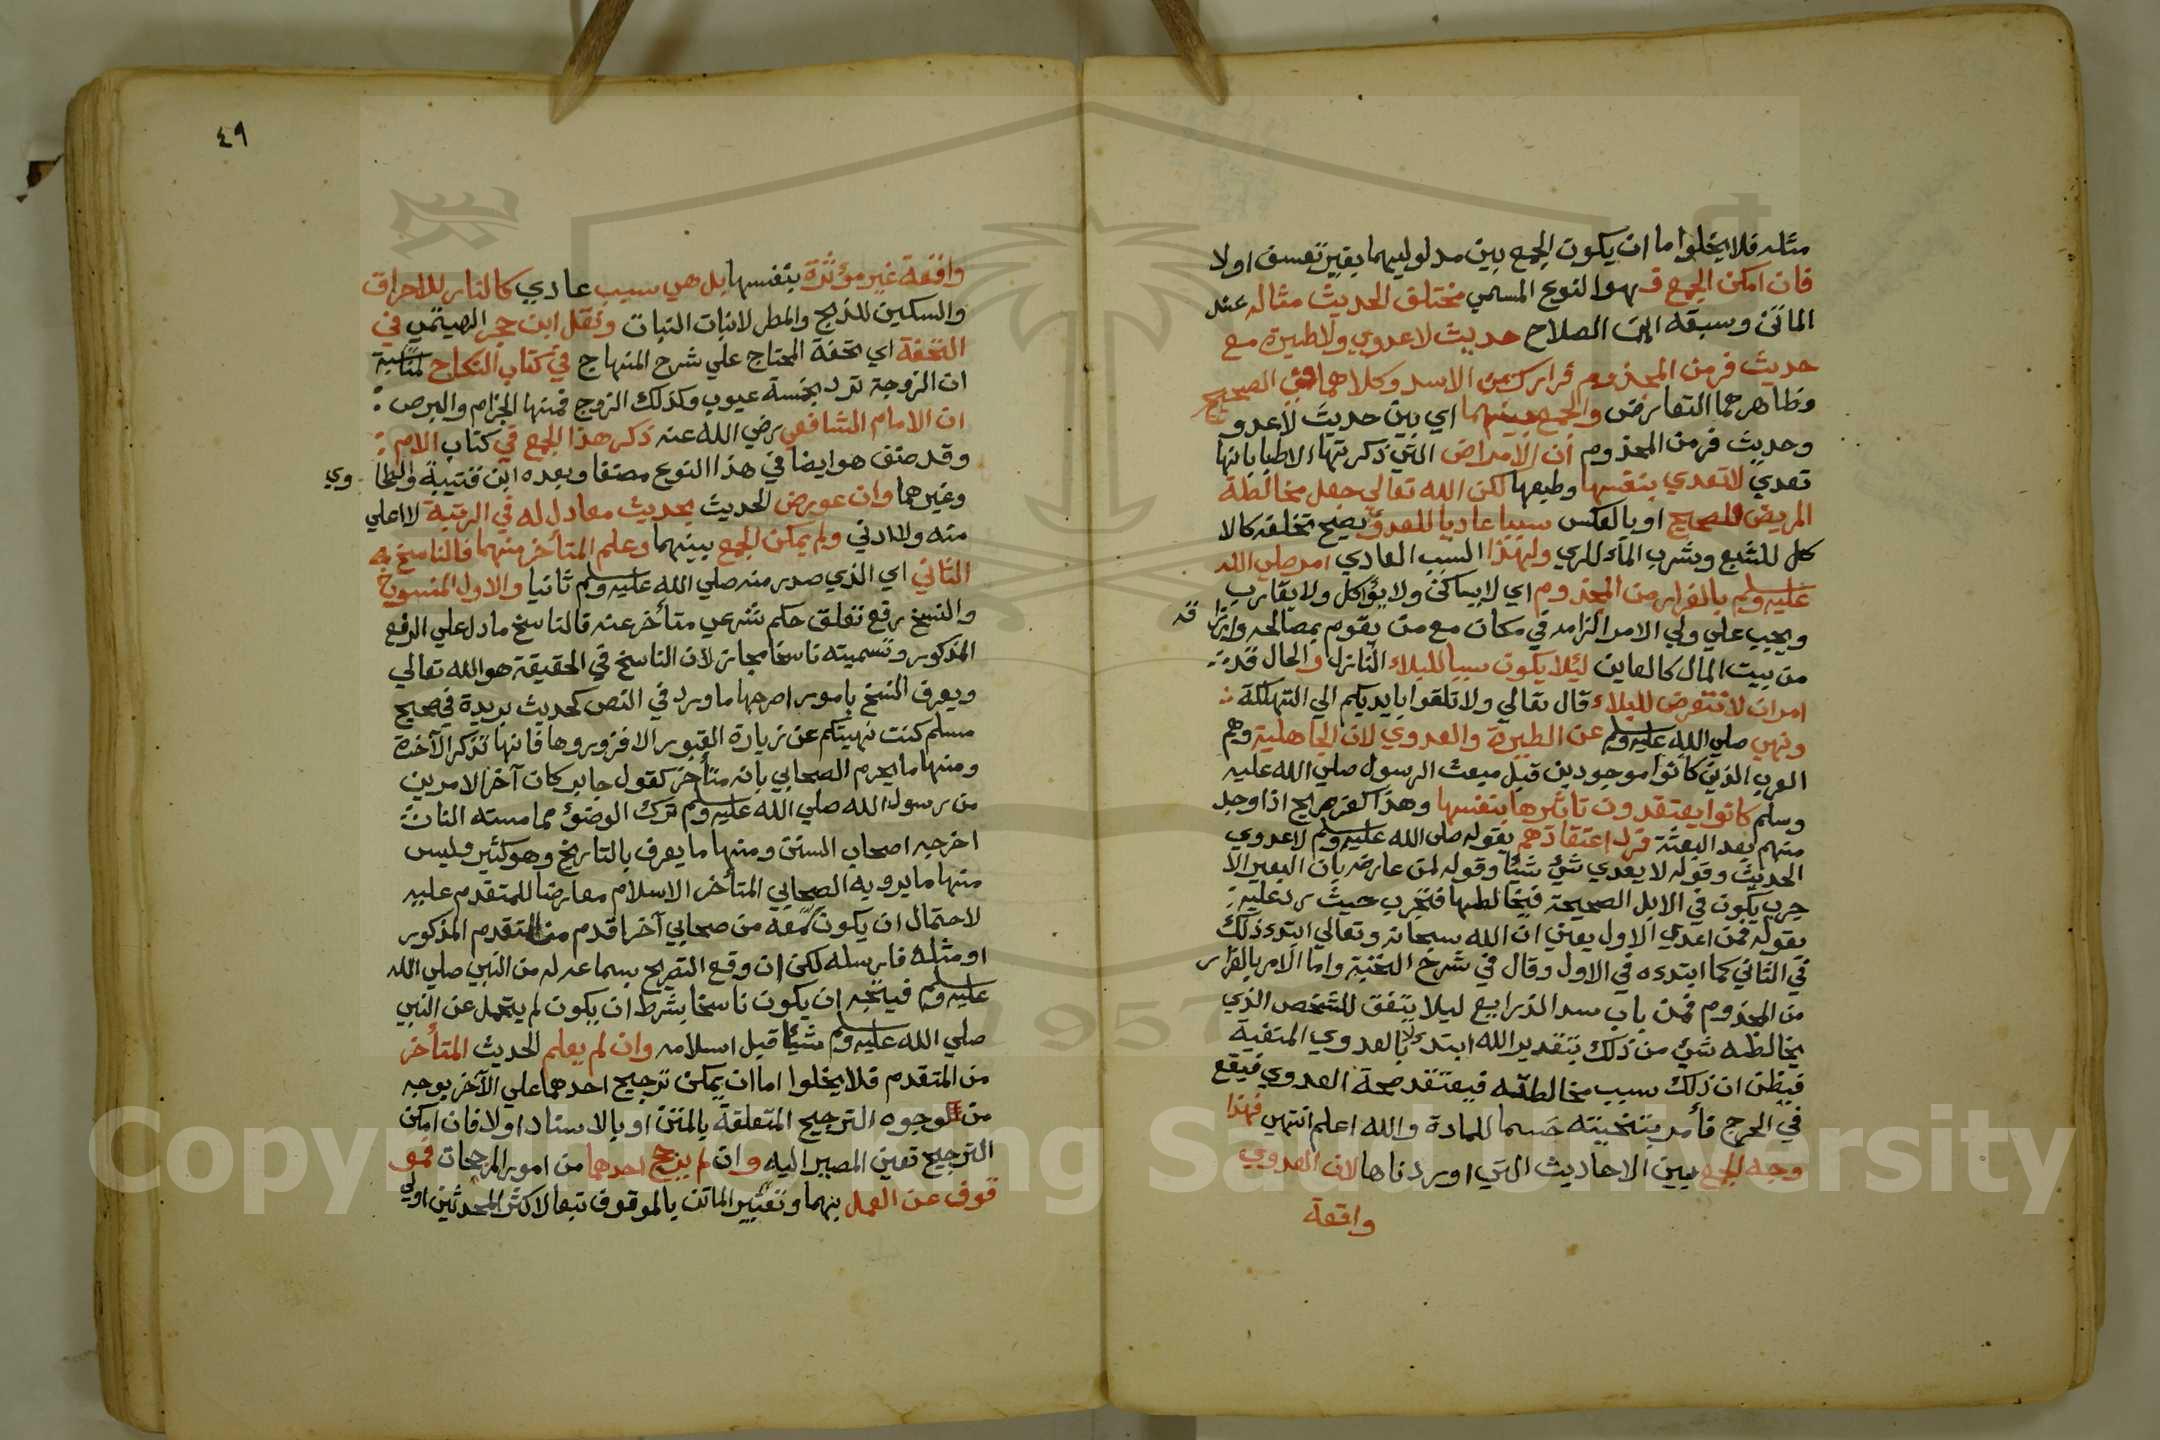 مثله فلا يخلوا ما ان يكون الجمع بين مدلوليهما بغير تعسف اولا
فان امكن الجمع فهوا لنوع المسمي مختلف الحديث مثاله عند
الماتن وسبقه ابن الصلاح حديث لا عدوي ولا طيرة مع
حديث فر من المجذوم فرارك من الاسد وكلاهما في الصحيح
وظاهرهما التعارض والجمع بينهما اي بين حديث لا عدو
وحديث فر من المجذوم ان الامراض التي ذكرتها الاطبا بانها
تعدي لا تعدي بنفسها وطبعها لكن الله تعالي جعل مخالطة
المريض للصحيح او بالعكس سببا عاديا للعدوي يصح تخلفه كالا
كل للشبع وشرب الماء للري ولهذا السبب العادي امر صلي الله
عليه وسلم بالفرار من المجذوم اي لا يساكن ولا يؤاكل ولا يقارب
ويجب علي ولي الامر الزامه في مكان مع من يقوم بمصالحه وارزا قه
من بيت المال كالعاين ليلا يكون سببا للبلاء النازل والحال قد
امران لا نتعرض للبلاء قال تعالي ولا تلقوا بايديكم الي التهلكة
ونهي صلي الله عليه وسلم عن الطيرة والعدوي لان الجاهلية وهم
العرب الذين كانوا موجودين قبل مبعث الرسول صلي الله عليه
وسلم كانوا يعتقدون تاثيرها بنفسها وهذا كفر صريح اذا وجد
منهم بعد البعثة فرد اعتقادهم بقوله صلي الله عليه وسلم لا عدوي
الحديث وقوله لا يعدي شئ شيئا وقوله لمن عارضه بان البعير الا
جرب يكون في الابل الصحيحة فيخالطها فتجرب حيث رد عليه
بقوله فمن اعدي الاول يعني ان الله سبحانه وتعالي ابتدء ذلك
في الثاني كما ابتدءه في الاول وقال في شرح النخبة واما الامر بالفرار
من المجذوم فمن باب سد الذرايع ليلا يتفق للشخص الذي
يخالطه شئ من ذلك بتقدير الله ابتدء لا بالعدوي المنفية
فيظن ان ذلك سبب مخالطته فيعتقد صحة العدوي فيقع
في الحرج فأمر بتجنبه حسما للمادة والله اعلم انتهي فهذا
وجه الجمع بين الاحاديث التي اوردناها لان العدوي
واقعة
٤٩
واقعة غير مؤثرة بنفسها بل هي سبب عادي كالنار للاحراق
والسكين للذبح والمطر لانبات النبات ونقل ابن حجر الهيتمي في
التحفة اي تحفة المحتاج علي شرح المنهاج في كتاب النكاح لمناسبة
ان الزوجة ترد بخمسة عيوب وكذلك الزوج فمنها الجزام والبرص
ان الامام الشافعي رضي الله عنه ذكر هذا الجمع في كتاب الام
وقد صنف هوا يضا في هذا النوع مصنفا وبعده ابن قتيبة والطحا وي
وغيرهما وان عورض الحديث بحديث معادل له في الرتبة لا اعلي
منه ولا ادني ولم يمكن الجمع بينهما وعلم المتأخر منهما فالناسخ به
الثاني اي الذي صدر منه صلي الله عليه وسلم ثانيا والاول المنسوخ
والنسخ رفع تعلق حكم شرعي متأخر عنه فالناسخ ما دل علي الرفع
المذكور وتسميته ناسخا مجاز لان الناسخ في الحقيقة هو الله تعالي
ويعرف النسخ بامور اصرحها ما ورد في النص كحديث بريدة في صحيح
مسلم كنت نهيتكم عن زيارة القبور الا فزوروها فانها تذكر الآخرة
ومنها ما يجزم الصحابي بانه متأخر كقول جابر كان آخر الامرين
من رسول الله صلي الله عليه وسلم ترك الوضؤ مما مسته النار
اخرجه اصحاب السنن ومنها ما يعرف بالتاريخ وهو كثير وليس
منها ما يرويه الصحابي المتأخر الاسلام معارضا للمتقدم عليه
لاحتمال ان يكون سمعه من صحابي آخر اقدم من المتقدم المذكور
او مثله فارسله لكن ان وقع التصريح بسماعه له من النبي صلي الله
عليه وسلم فيتجه ان يكون ناسخا بشرط ان يكون لم يتحمل عن النبي
صلي الله عليه وسلم شيئا قبل اسلامه وان لم يعلم الحديث المتأخر
من المتقدم فلا يخلوا اما ان يمكن ترجيح احدهما علي الآخر بوجه
من وجوه الترجيح المتعلقة بالمتن او بالاسناد اولا فان امكن
الترجيح تعين المصير اليه وان لم يرجح احدهما من امور المرجحات فمو
قوف عن العمل بهما وتعبير الماتن بالموقوف تبعا لاكثر المحدثين اولي